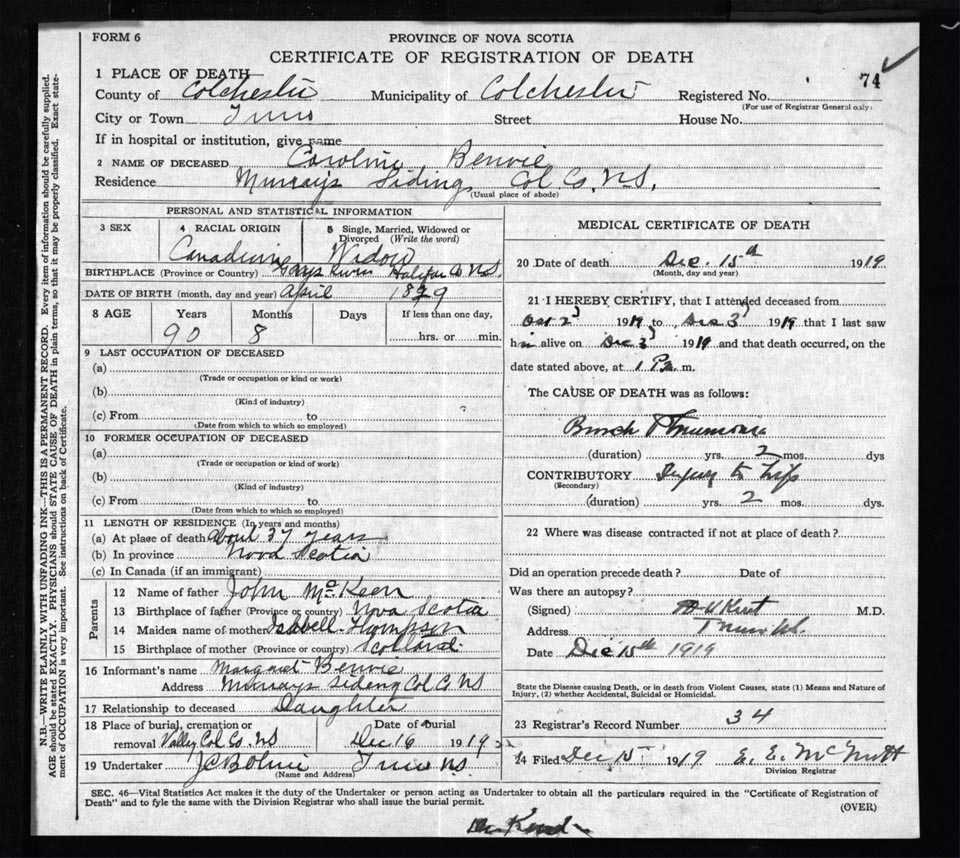 FORM 6
PROVINCE OF NOVA SCOTIA
CERTIFICATE OF REGISTRATION OF DEATH
74
1 PLACE OF DEATH
County of Colchester Municipality of Colchester Registered No.
(For use of Registrar General only)
City or Town Truro Street House No.
If in hospital or institution, give name
2 NAME OF DECEASED Caroline Benvie
Residence Murray's Siding Col. Co. N.S.
(Usual place of abode)
PERSONAL AND STATISTICAL INFORMATION
3 SEX 4 RACIAL ORIGIN 5 Single, Married, Widowed or Divorced (Write the word)
Canadian Widow
BIRTHPLACE (Province or Country) Gays River Halifax Co N.S.
DATE OF BIRTH (month, day and year) April
8 AGE Years Months Days If less than one day,
90 8 hrs. or min.
9 LAST OCCUPATION OF DECEASED
(a)
(Trade or occupation or kind or work)
(b)
(Kind of industry)
(c) From to
(Date from which to which so employed)
10 FORMER OCCUPATION OF DECEASED
(a)
(Trade or occupation or kind of work)
(b)
(Kind of industry)
(c) From to
(Date from which to which so employed)
11 LENGTH OF RESIDENCE (In years and months)
(a) At place of death About 37 years
(b) In province Nova Scotia
(c) In Canada (if an immigrant)
Parents
12 Name of father John McKeen
13 Birthplace of father (Province or country) Nova Scotia
14 Maiden name of mother Isabell Thompson
15 Birthplace of mother (Province or country) Scotland.
16 Informant's name Margaret Benvie
Address Murrays Siding Col Co NS
17 Relationship to deceased Daughter
18 Place of burial, cremation or Date of burial
removal Valley Col Co. NS Dec 16 1919
19 Undertaker Truro NS
(Name and Address)
MEDICAL CERTIFICATE OF DEATH
20 Date of death Dec. 15th 1919
(Month, day and year)
21 I HEREBY CERTIFY, that I attended deceased from
1919 to Dec 3 1919 that I last saw
h alive on Dec 3 1919 and that death occurred, on the
date stated above, at 1 P. m.
The CAUSE OF DEATH was as follows:
Bronch Pneumonia
(duration) yrs. 2 mos. dys
CONTRIBUTORY Injury to hip
(Secondary)
(duration) yrs. 2 mos. dys.
22 Where was disease contracted if not at place of death?
Did an operation precede death? Date of
Was there an autopsy?
(Signed) Kent M.D.
Address Truro NS.
Date Dec 15th 1919
State the Disease causing Death, or in death from Violent Causes, state (1) Means and Nature of
Injury, (2) whether Accidental, Suicidal or Homicidal.
23 Registrar's Record Number 34
24 Filed Dec 15 1919 E. E. McNutt
Division Registrar
SEC. 46—Vital Statistics Act makes it the duty of the Undertaker or person acting as Undertaker to obtain all the particulars required in the "Certificate of Registration of
Death" and to fyle the same with the Division Registrar who shall issue the burial permit.
(OVER)
N.B.—WRITE PLAINLY WITH UNFADING INK—THIS IS A PERMANENT RECORD. Every item of information should be carefully supplied.
AGE should be stated EXACTLY. PHYSICIANS should STATE CAUSE OF DEATH in plain terms, so that it may be properly classified. Exact state-
ment of OCCUPATION is very important. See instructions on back of Certificate.